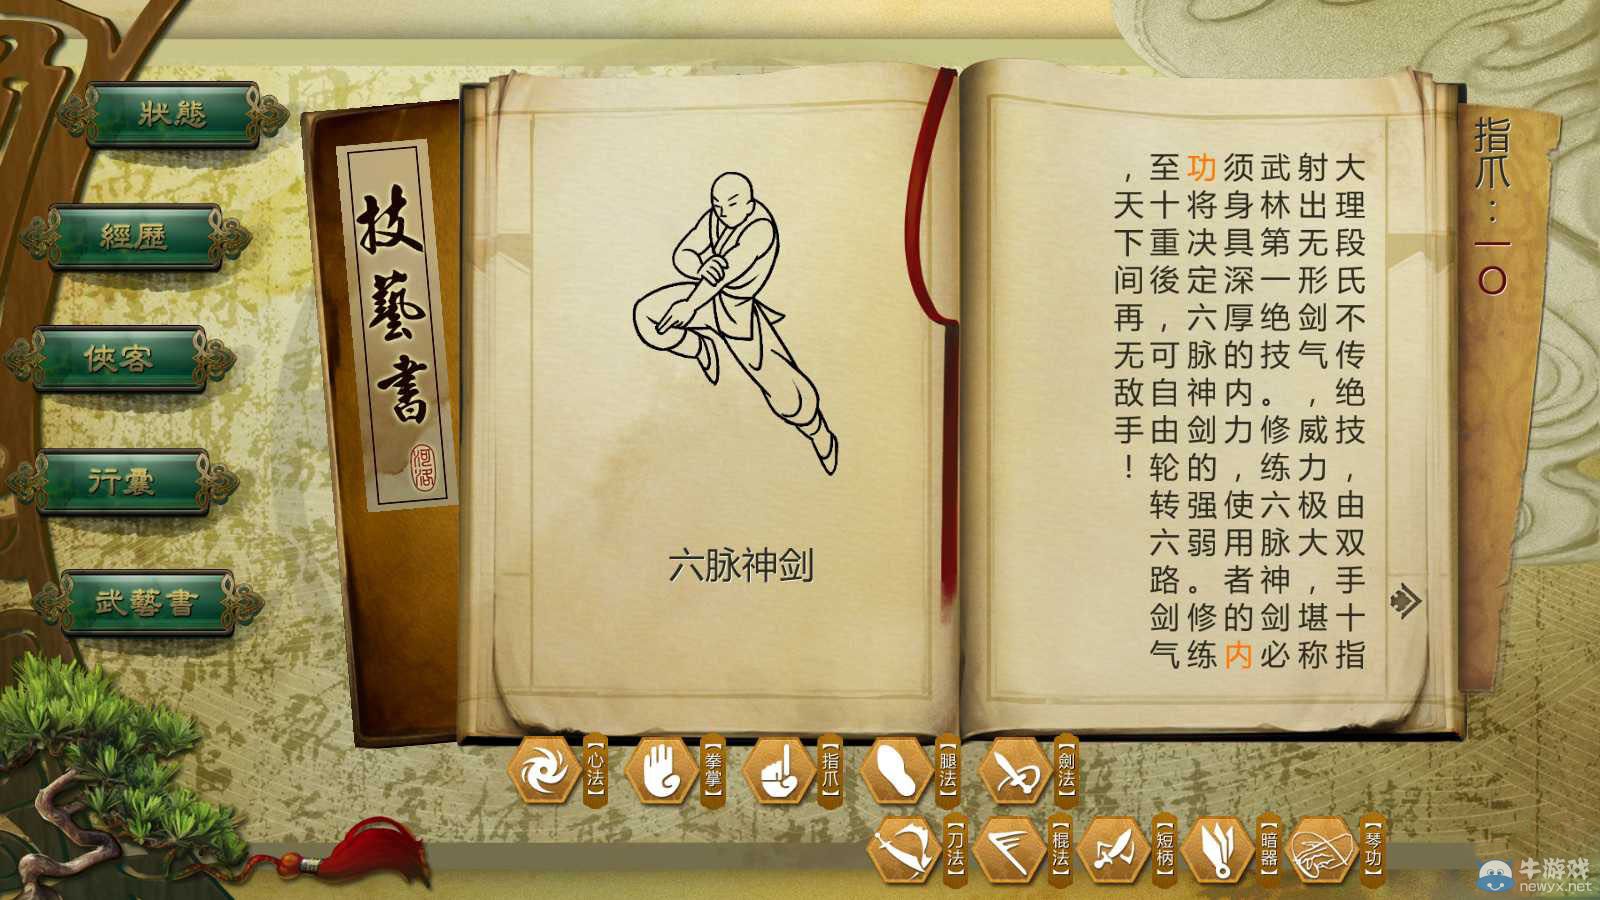 狀態
經歷
俠客
行囊
武藝書
技藝書
河洛
六脉神剑
指爪：一〇
大理段氏不传绝技，由双手十指
射出无形剑气，威力极大，堪称
武林第一绝技。修练六脉神剑必
须身具深厚的内力，使用者的内
功将决定六脉神剑的强弱。修练
至十重後，可自由轮转六路剑气
，天下间再无敌手！
【心法】
【拳掌】
【指爪】
【腿法】
【劍法】
【刀法】
【棍法】
【短柄】
【暗器】
【琴功】
牛游戏
newyx.net